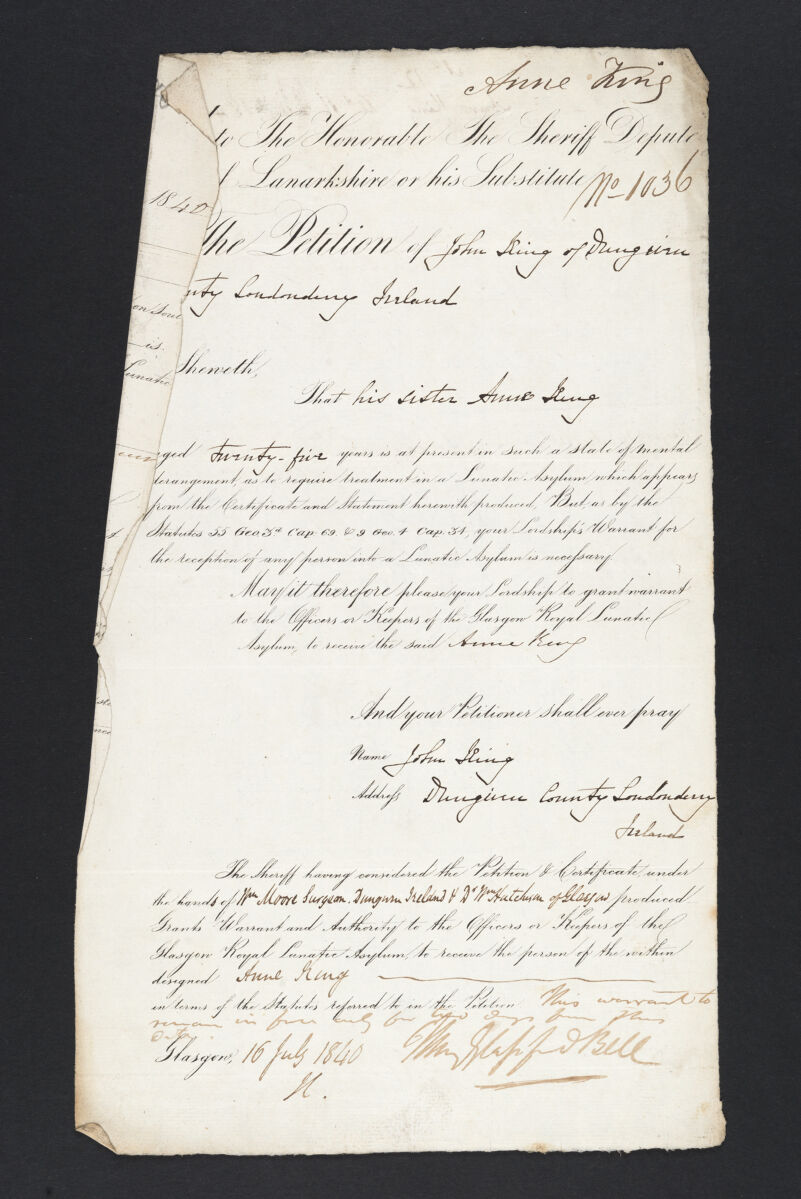 Anne King
to The Honorable The Sheriff Depute
Lanarkshire or his Substitute
No 1036
1840
The Petition of John King of Dungiven
nty Londonderry Ireland
is
Lunatic
Sheweth,
That his sister Anne King
aged twenty-five years is at present in such a state of mental
derangement, as to require treatment in a Lunatic Asylum which appears
from the Certificate and Statement herewith produced, But, as by the
Statutes 55 Geo. 3d Cap. 69. & 9 Geo. 4 Cap. 34, your Lordship's Warrant for
the reception of any person into a Lunatic Asylum is necessary.
May it therefore please your Lordship to grant warrant
to the Officers or Keepers of the Glasgow Royal Lunatic
Asylum, to receive the said Anne King
And your Petitioner shall ever pray
Name John King
Address Dungiven County Londonderry
Ireland
The Sheriff having considered the Petition & Certificate under
the hands of Wm Moore Surgeon. Dungiven Ireland & Dr Wm Hutcheson of Glasgow produced
Grants Warrant and Authority to the Officers or Keepers of the
Glasgow Royal Lunatic Asylum, to receive the person of the within
designed Anne King
in terms of the Statutes referred to in the Petition. This warrant to
remain in force only for two days from this
date.
Glasgow, 16 July 1840 Bell